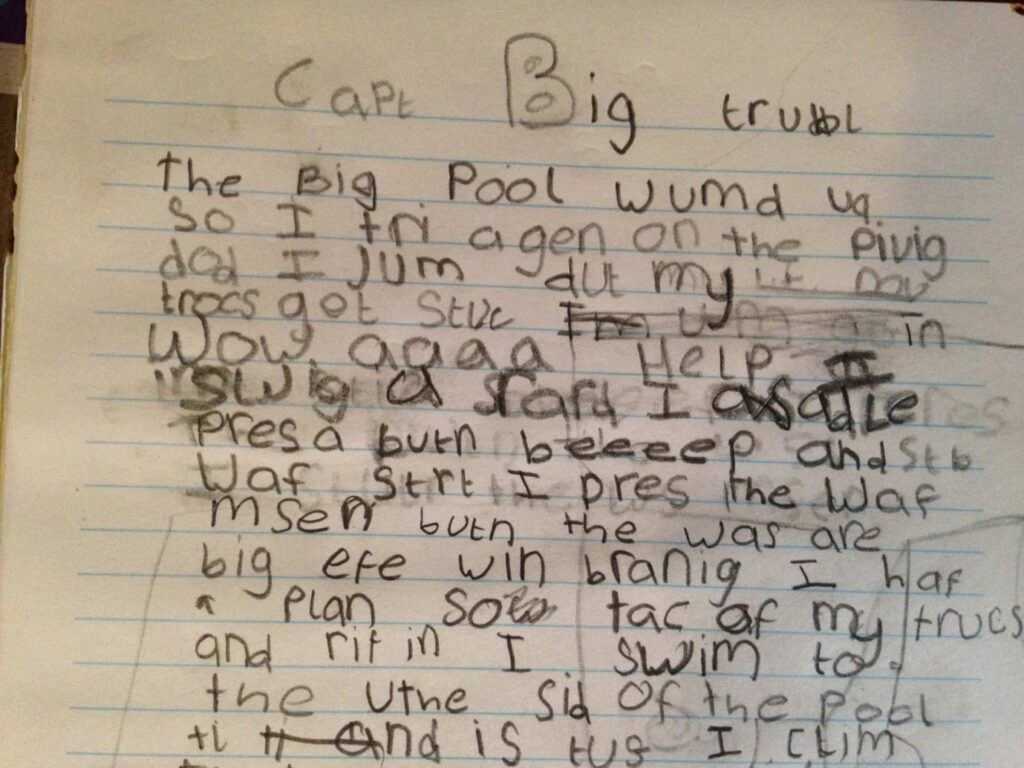 Capt Big trubl
The Big Pool wumd up
So I tri agen on the Divig
dod I Jum dut my
trocs got Stuc in
Wow aaaa Help
swig a stard I
pres a butn beeeeep and
Waf Strt I pres the Waf
msen butn the was are
big efe win branig I haf
a plan so tac of my trucs
and rit in I swim to
the uthe sid of the pool
ti and is tus I clim